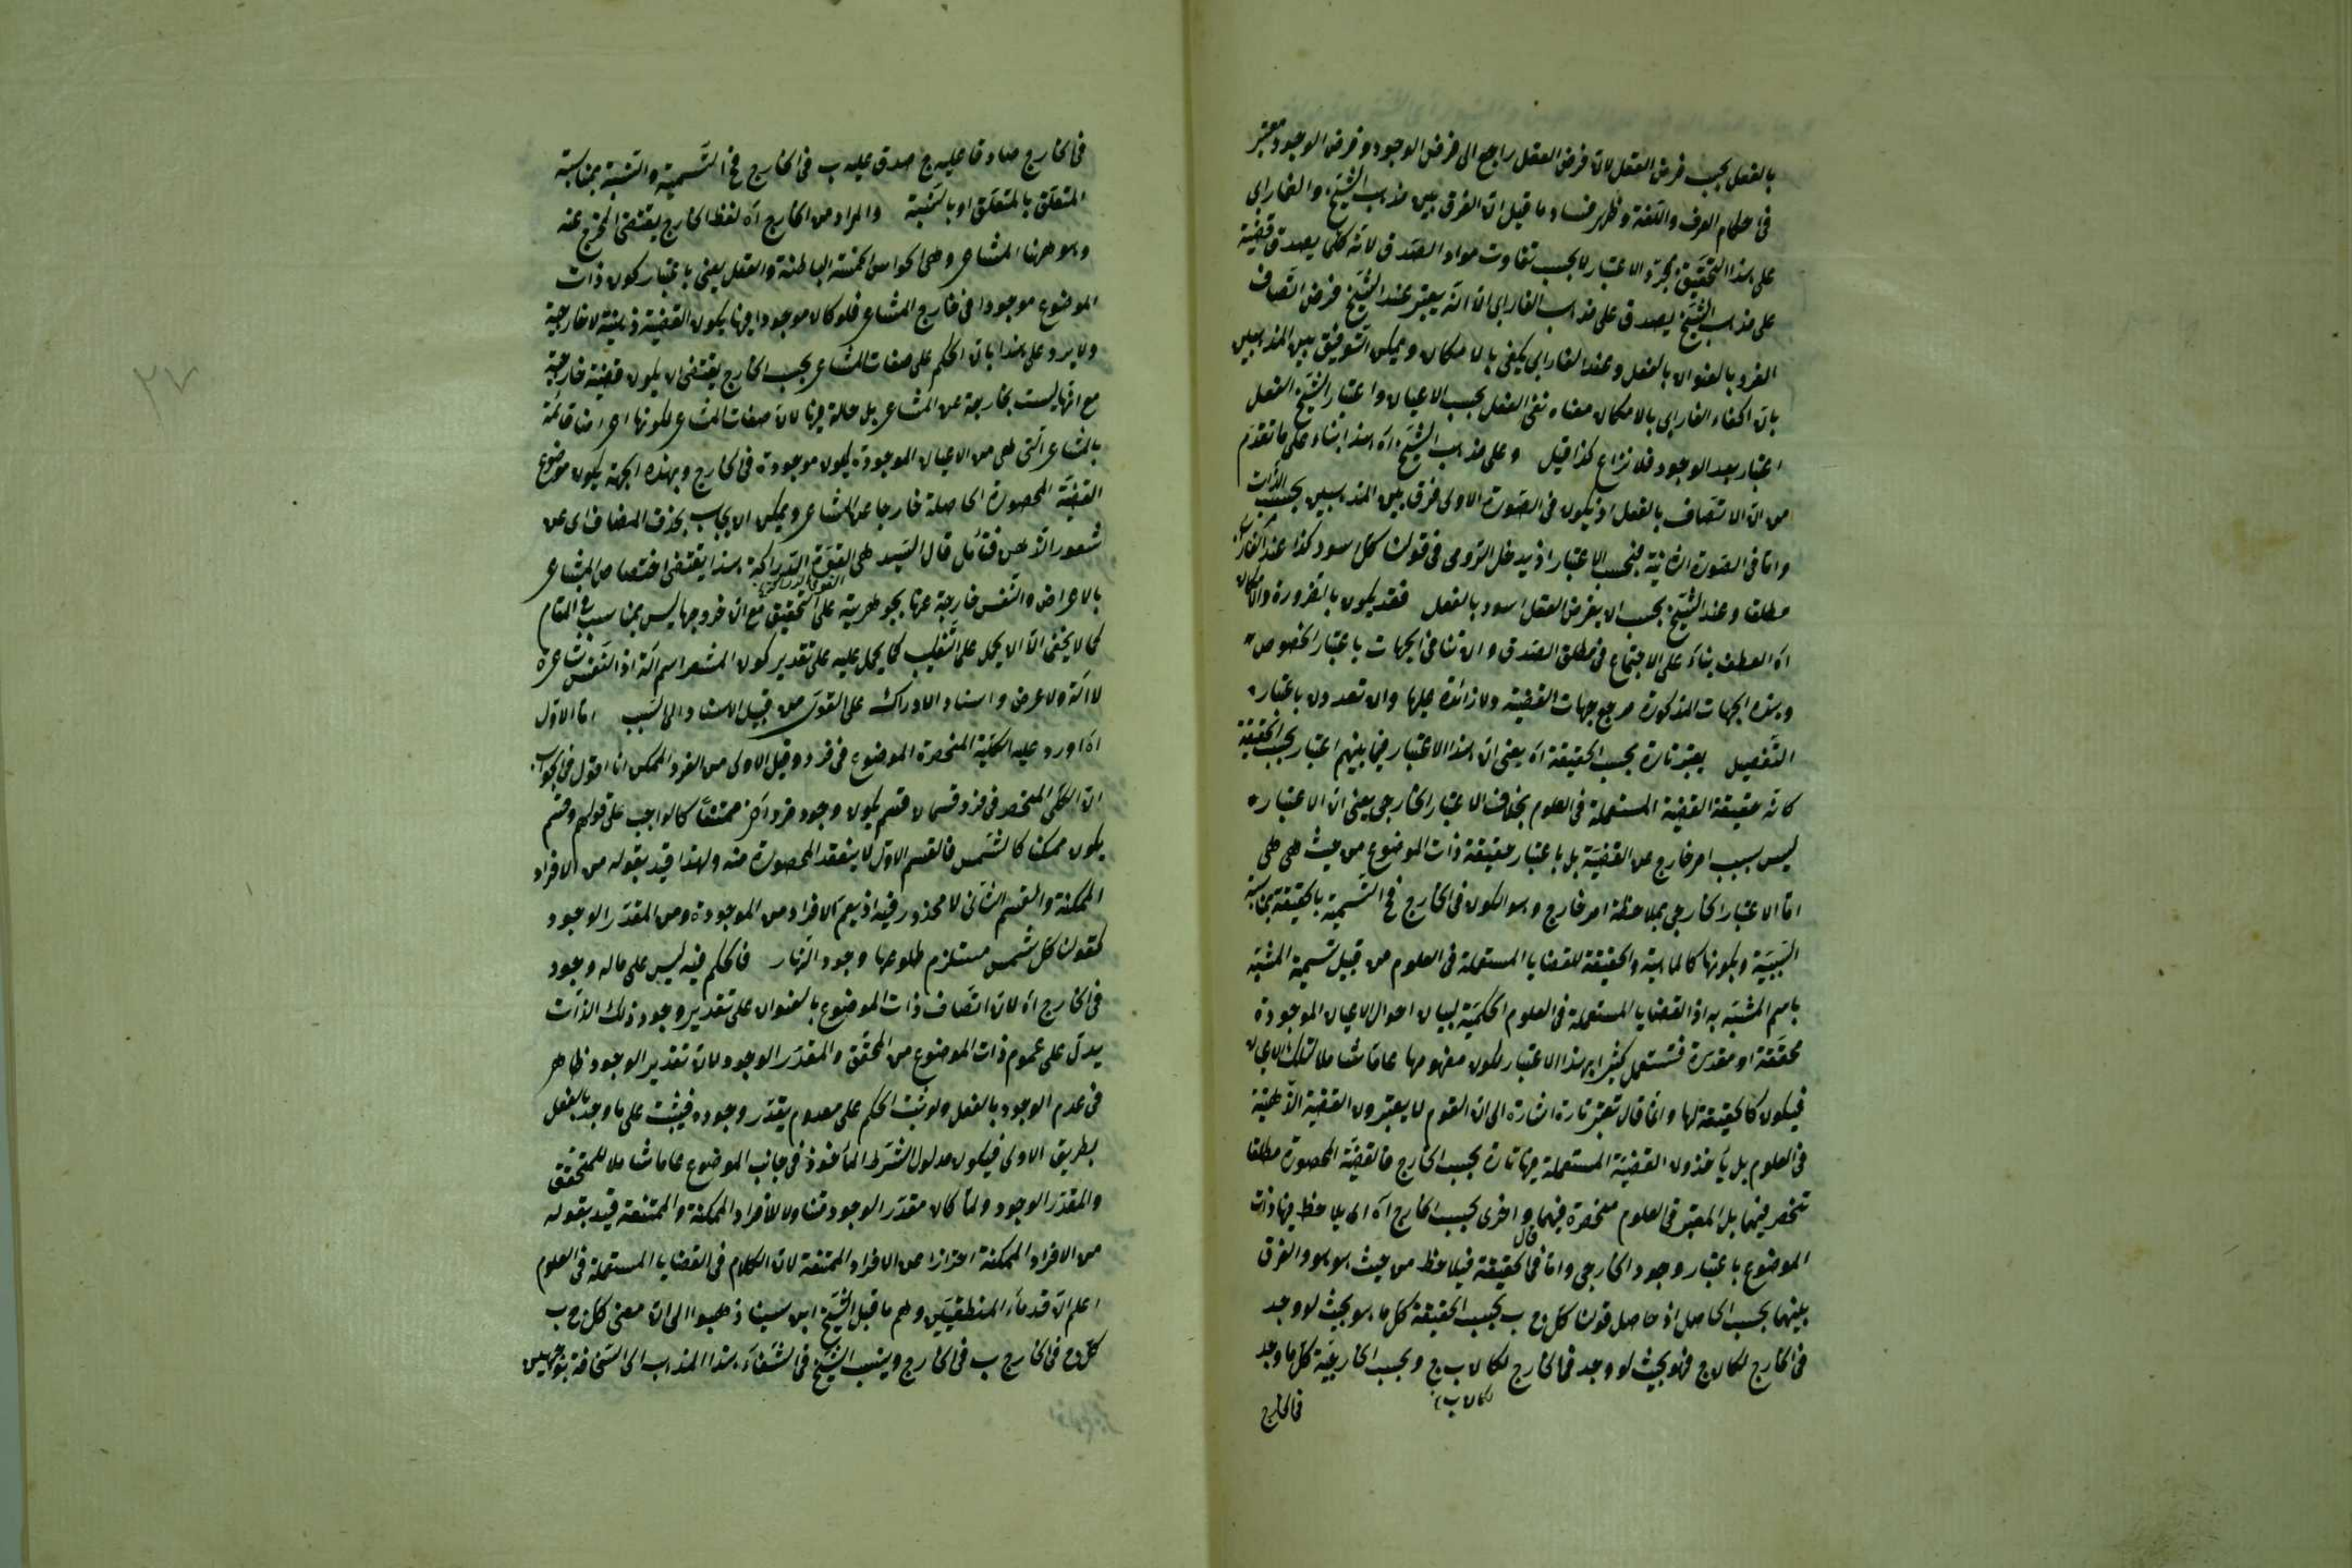 بالفعل بحسب فرض العقل لان فرض العقل راجع الى فرض الوجود وفرض الوجود معتبر
فى احكام العرف واللغة وظهر فساد ما قيل ان الفرق بين مذهب الشيخ والفارابى
على هذا التحقيق بمجرد الاعتبار لا بحسب تفاوت مواد الصدق لانه كلما يصدق قضية
على مذهب الشيخ يصدق على مذهب الفارابى الا انه يعتبر عند الشيخ فرض اتصاف
الفرد بالعنوان بالفعل وعند الفارابى يكفى بالامكان ويمكن التوفيق بين المذهبين
بان اكتفاء الفارابى بالامكان معناه نفى الفعل بحسب الاعيان واعتبار الشيخ الفعل
اعتبار بعد الوجود فلا نزاع كذا قيل وعلى مذهب الشيخ اه هذا بناء على ما تقدم
من ان الاتصاف بالفعل اذ يكون فى الصورة الاولى فرق بين المذهبين بحسب الذات
واما فى الصورة الثانية فبحسب الاعتبار اذ يدخل الرومى فى قولنا كل اسود كذا عند الفارابى
مطلقا وعند الشيخ بحسب ان يفرض العقل اسود بالفعل فقد يكون بالضرورة والامكان
اه العطف بناء على الاجتماع فى مطلق الصدق وان تنافى الجهات باعتبار الخصوص
وهذه الجهات المذكورة مرجع جهات القضية ولا زائدة عليها وان تعددن باعتبار
التفصيل يعتبر تارة بحسب الحقيقة اه يعنى ان هذا الاعتبار فيما بينهم اعتبار بحسب الحقيقة
كانه حقيقة القضية المستعملة فى العلوم بخلاف الاعتبار الخارجى يعنى ان الاعتبار
ليس بسبب امر خارج عن القضية بل باعتبار حقيقة ذات الموضوع من حيث هى هى
اما الاعتبار الخارجى بملاحظة امر خارج وهو الكون فى الخارج فح التسمية بالحقيقة بمناسبة
السببية وبكونها كالماهية والحقيقة للقضايا المستعملة فى العلوم من قبيل تسمية المشبه
باسم المشبه به اذ القضايا المستعملة فى العلوم الحكمية لبيان احوال الاعيان الموجودة
محققة او مقدرة فتستعمل كثيرا بهذا الاعتبار لكون مفهومها عاما شاملا لتلك الاعيان
فيكون كالحقيقة لها وانما قال تعتبر تارة اشارة الى ان القوم لا يعتبرون القضية الذهنية
فى العلوم بل ياخذون القضية المستعملة فيها تارة بحسب الخارج فالقضية المحصورة مطلقا
تنحصر فيهما بل المعتبر فى العلوم منحصرة فيهما قال واخرى بحسب الخارج اه اى يلاحظ فيها ذات
الموضوع باعتبار وجود الخارجى واما فى الحقيقة فيلاحظ من حيث هو هو والفرق
بينهما بحسب الحاصل اذ حاصل قولنا كل ج ب بحسب الحقيقة كل ما هو بحيث لو وجد
فى الخارج لكان ج فهو بحيث لو وجد فى الخارج لكان ب ج وبحسب الخارجية كل ما وجد
لكان ب
فى الخارج
فى الخارج صادقا عليه ج صدق عليه ب فى الخارج فح التسمية والنسبة بمناسبة
المتعلق بالمتعلق او بالنسبة والمراد من الخارج اه لفظ الخارج يقتضى المخرج عنه
وهو ههنا المشاعر وهى الحواس الخمسة الباطنة والعقل يعنى باعتبار كون ذات
الموضوع موجودا فى خارج المشاعر فلو كان موجودا فيها يكون القضية ذهنية لا خارجية
ولا يرد على هذا بان الحكم على صفات المشاعر بحسب الخارج يقتضى ان يكون قضية خارجية
مع انها ليست بخارجة عن المشاعر بل حالة فيها لان صفات المشاعر لكونها اعراضا قائمة
بالمشاعر التى هى من الاعيان الموجودة يكون موجودة فى الخارج وبهذه الجهة يكون موضوع
القضية المحصورة الحاصلة خارجا عن المشاعر ويمكن ان يجاب بحذف المضاف اى عن
شعور الذهن فتأمل قال السيد هى القوة الدراكة هذا يقتضى اختصاص المشاعر
القوى الدراكة
بالاعراض والنفس خارجة عنها بجوهرية على التحقيق مع ان خروجها ليس بمناسب فى المقام
كما لا يخفى الا ان يحمل على التغليب كما يحمل عليه على تقدير كون المشعر اسم آلة اذ النفس شاعرة
لا آلة ولا عرض واسناد الادراك على القوى من قبيل الاسناد الى السبب اما الاول
اه اورد عليه الكلية المنحصرة الموضوع فى فرد وقيل الاولى من الفرد الممكن انا اقول فى الجواب
ان الكلى المنحصر فى فرد قسمان قسم يكون وجود فرد آخر ممتنعا كالواجب على قولهم وقسم
يكون ممكنا كالشمس فالقسم الاول لا ينعقد المحصورة منه ولهذا قيد بقوله من الافراد
الممكنة والقسم الثانى لا محذور فيه اذ يعم الافراد من الموجودة ومن المقدر الوجود
كقولنا كل شمس مستلزم طلوعها وجود النهار فالحكم فيه ليس على ما له وجود
فى الخارج اه لان اتصاف ذات الموضوع بالعنوان على تقدير وجود ذلك الذات
يدل على عموم ذات الموضوع من المحقق والمقدر الوجود لان تقدير الوجود ظاهر
فى عدم الوجود بالفعل ولو ثبت الحكم على معدوم يقدر وجوده فيثبت على ما وجد بالفعل
بطريق الاولى فيكون مدلول الشرط المأخوذ فى جانب الموضوع عاما شاملا للمتحقق
والمقدر الوجود ولما كان مقدر الوجود متناولا للافراد الممكنة والممتنعة قيد بقوله
من الافراد الممكنة احترازا عن الافراد الممتنعة لان الكلام فى القضايا المستعملة فى العلوم
اعلم ان قدماء المنطقيين وهم ما قبل الشيخ ابن سينا ذهبوا الى ان معنى كل ج ب
كل ج فى الخارج ب فى الخارج وينسب الشيخ فى الشفاء هذا المذهب الى السخافة بوجهين
٢٧